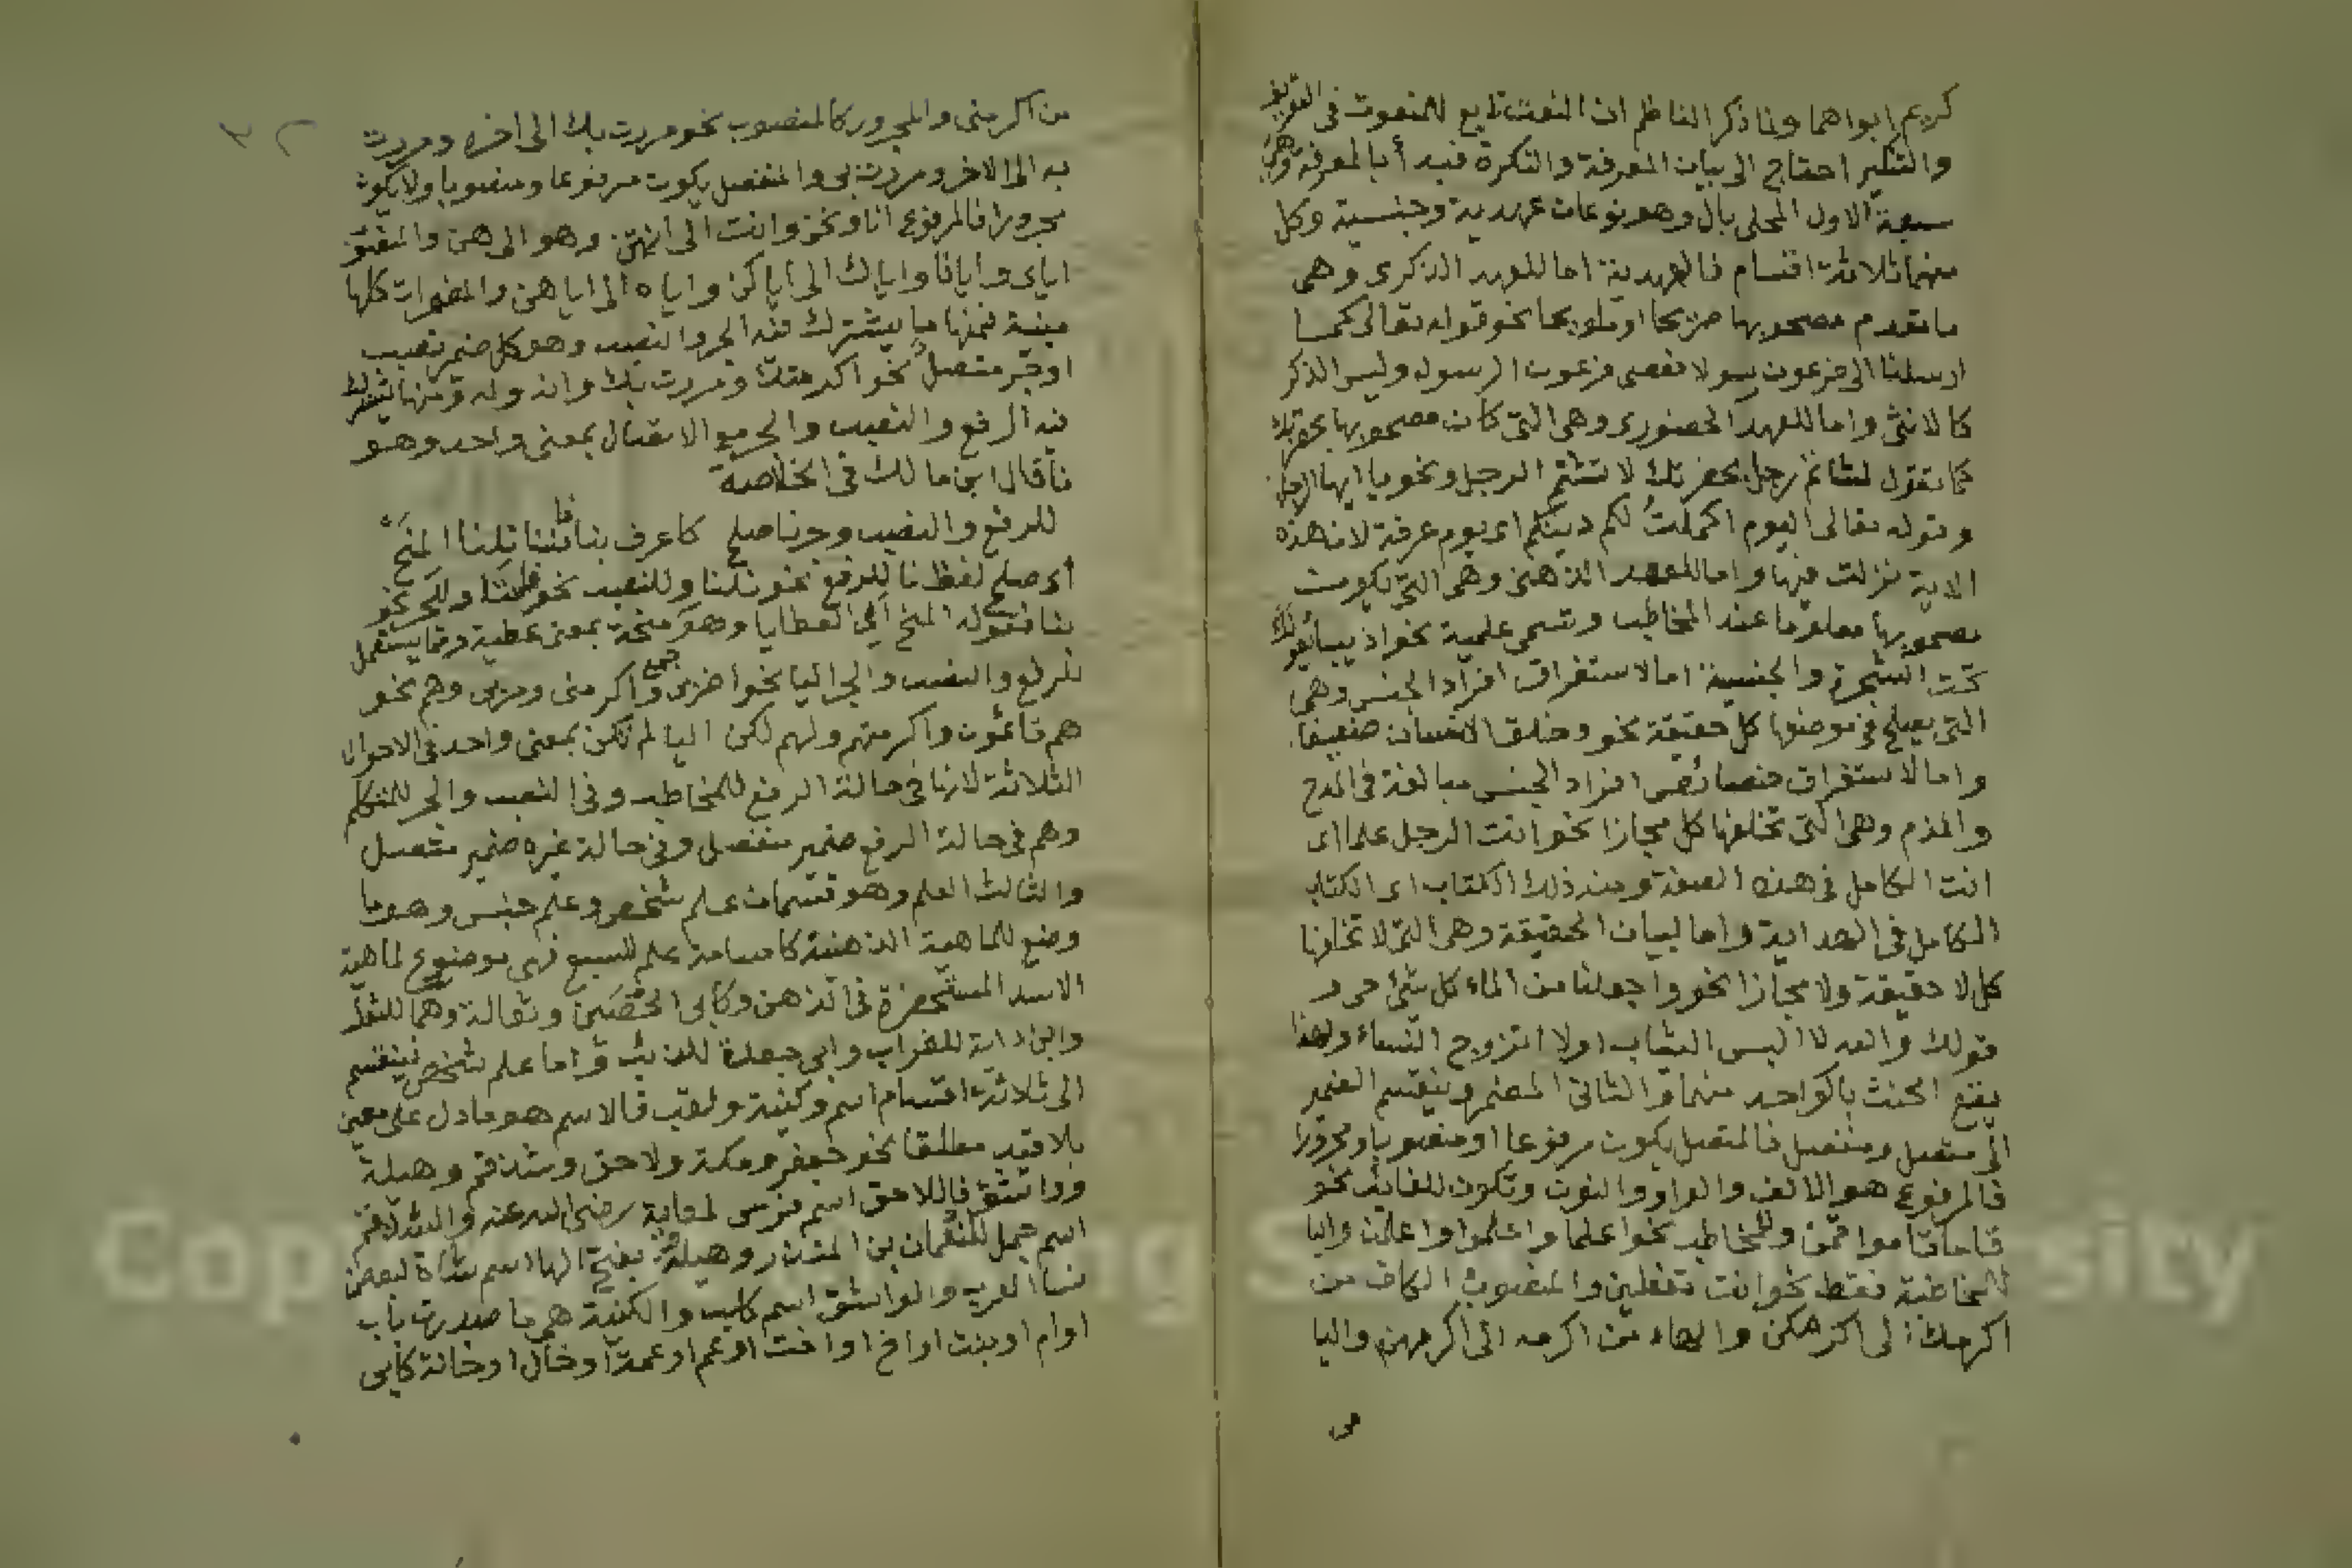 كريم ابواهما ولما ذكر الناظم ان النعت تابع للمنعوت فى التعريف
والتنكير احتاج الى بيان المعرفة والنكرة فبدأ بالمعرفة وهى
سبعة الاول المحلى بال وهو نوعان عهدية وجنسية وكل
منهما ثلاثة اقسام فالعهدية اما للعهد الذكرى وهى
ما تقدم مصحوبها صريحا او تلويحا نحو قوله تعالى كما
ارسلنا الى فرعون رسولا فعصى فرعون الرسول وليس الذكر
كالانثى واما للعهد الحضورى وهى التى كان مصحوبها بحضرتك
كما تقول لشاتم رجل بحضرتك لا تشتم الرجل ونحو يا ايها الرجل
وقوله تعالى اليوم اكملت لكم دينكم اى يوم عرفة لان هذه
الاية نزلت فيها واما للعهد الذهنى وهى التى يكون
مصحوبها معلوما عند المخاطب وتسمى علمية نحو اذ يبايعونك
تحت الشجرة والجنسية اما لاستغراق افراد الجنس وهى
التى يصلح فى موضعها كل حقيقة نحو وخلق الانسان ضعيفا
واما لاستغراق خصائص افراد الجنس مبالغة فى المدح
والذم وهى التى تخلفها كل مجازا نحو انت الرجل علما اى
انت الكامل فى هذه الصفة ومنه ذلك الكتاب اى الكتاب
الكامل فى الهداية واما لبيان الحقيقة وهى التى لا تخلفها
كل لا حقيقة ولا مجازا نحو واجعلنا من الماء كل شئ حى و
قولك والله لا البس الثياب اولا اتزوج النساء ولهذا
يقع الحنث بالواحد منهما والثانى المضمر وينقسم الضمير
الى متصل ومنفصل فالمتصل يكون مرفوعا او منصوبا ومجرورا
فالمرفوع هو الالف والواو والنون وتكون للغايب نحو
قاما قاموا قمن وللمخاطب نحو اعلما واعلموا واعلمن واليا
للمخاطبة فقط نحو انت تفعلين والمنصوب الكاف من
اكرمك الى اكرمكن والهاء من اكرمه الى اكرمهن واليا
من
من اكرمنى والمجرور كالمنصوب نحو مررت بك الى اخره ومررت
به الى الاخر ومررت بى والمنفصل يكون مرفوعا ومنصوبا ولا يكون
مجرورا فالمرفوع انا ونحن وانت الى انتن وهو الى هن والمنصوب
اياى وايانا واياك الى اياكن واياه الى اياهن والمضمرات كلها
مبنية فمنها ما يشترك فيه الجر والنصب وهو كل ضمير نصب
او جر متصل نحو اكرمتك ومررت بك وانه وله ومنها يشترك
فيه الرفع والنصب والجر مع الاتصال بمعنى واحد وهو
نا قال ابن مالك فى الخلاصة
للرفع والنصب وجر نا صلح كاعرف بنا فاننا نلنا المنح
أى صلح لفظ نا للرفع نحو نلنا وللنصب نحو فاننا وللجر نحو
بنا فقوله المنح اى العطايا وهو جمع منحة بمعنى عطية ومما يستعمل
للرفع والنصب والجر اليا نحو اضربى واكرمنى ومربى وهم نحو
هم قائمون واكرمتهم ولهم لكن اليا لم تكن بمعنى واحد فى الاحوال
الثلاثة لانها فى حالة الرفع للمخاطب وفى النصب والجر للمتكلم
وهم فى حالة الرفع ضمير منفصل وفى حالة غيره ضمير متصل
والثالث العلم وهو قسمان علم شخص وعلم جنس وهو ما
وضع للماهية الذهنية كاسامة علم للسبع فهى موضوع لماهية
الاسد المستحضرة فى الذهن وكابى الحصين وثعالة وهما للثعلب
وابن داية للغراب وابى جعدة للذئب واما علم شخص فينقسم
الى ثلاثة اقسام اسم وكنية ولقب فالاسم هو ما دل على معين
بلا قيد مطلقا نحو جعفر ومكة ولاحق وشذقم وهيلة
وواشق فاللاحق اسم فرس لمعاوية رضى الله عنه والشذقم
اسم جمل للنعمان بن المنذر وهيلة بفتح الها اسم شاة لبعض
نسا العرب والواشق اسم كلب والكنية هى ما صدرت باب
او ام او بنت او اخ او اخت او عم او عمة او خال او خالة كابى